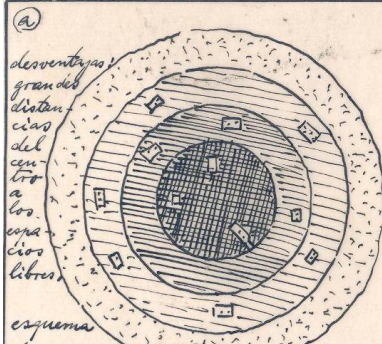 a
desventajas:
grandes
distan-
cias
del
cen-
tro
a
los
espa-
cios
libres,
esquema